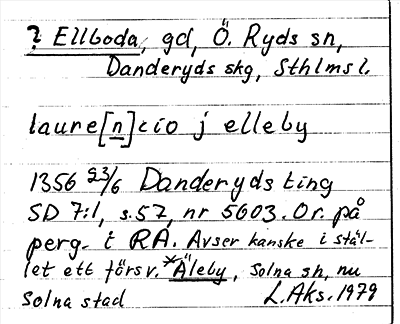 ? Ellboda, gd, Ö. Ryds sn,
Danderyds skg, Sthlms l.
laure[n]cio j elleby
1356 23/6 Danderyds ting
SD 7:1, s.57, nr 5603. Or. på
perg. i RA. Avser kanske i stäl-
let ett försv. *Äleby, Solna sn, nu
Solna stad L.Aks. 1979